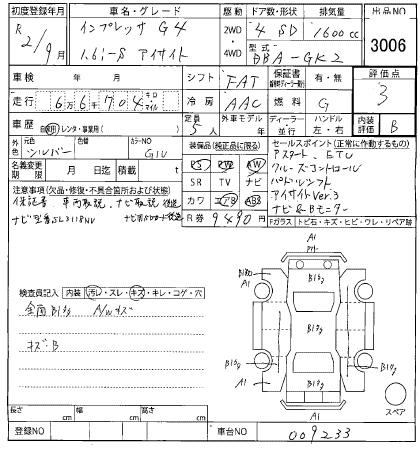 初度登録年月 車名・グレード 駆動 ドア数・形状 排気量 出品NO
R 2/9月 インプレッサ G4 2WD 4 SD 1600cc 3006
1.6i-S アイサイト 4WD 型式 DBA-GK2
車検 年 月 シフト FAT 保証書 有・無 評価点
走行 6万6千704 キロ マイル 冷房 AAC 燃料 G 3
車歴 自家用 レンタ・事業用( ) 定員 5人 外車モデル 年 ディーラー 並行 ハンドル 左・右 内装評価 B
外色 元色 シルバー 色 カラーNO G1U 装備品(純正品に限る) セールスポイント(正常に作動するもの)
名義変更期限 月 日迄 積載 t PS PW AW Pスタート、ETC
SR TV ナビ クルーズコントロール
注意事項(欠品・修復・不具合箇所および状態) カワ エアB ABS パドルシフト
保証書 車両取説、ナビ取説 後送 R券 9490円 アイサイトVer.3
ナビ & Bモニター
Fガラス トビ石・キズ・ヒビ・ワレ・リペア跡
A1
検査員記入 内装 汚レ・スレ・キズ・キレ・コゲ・穴
全面B1タg A/Wキズ
キズ・B
A1
B1タg
B1タg
B1タg
B1タg
A1
A1
スペア
長さ cm 幅 cm 高さ cm
登録NO 車台NO 009233